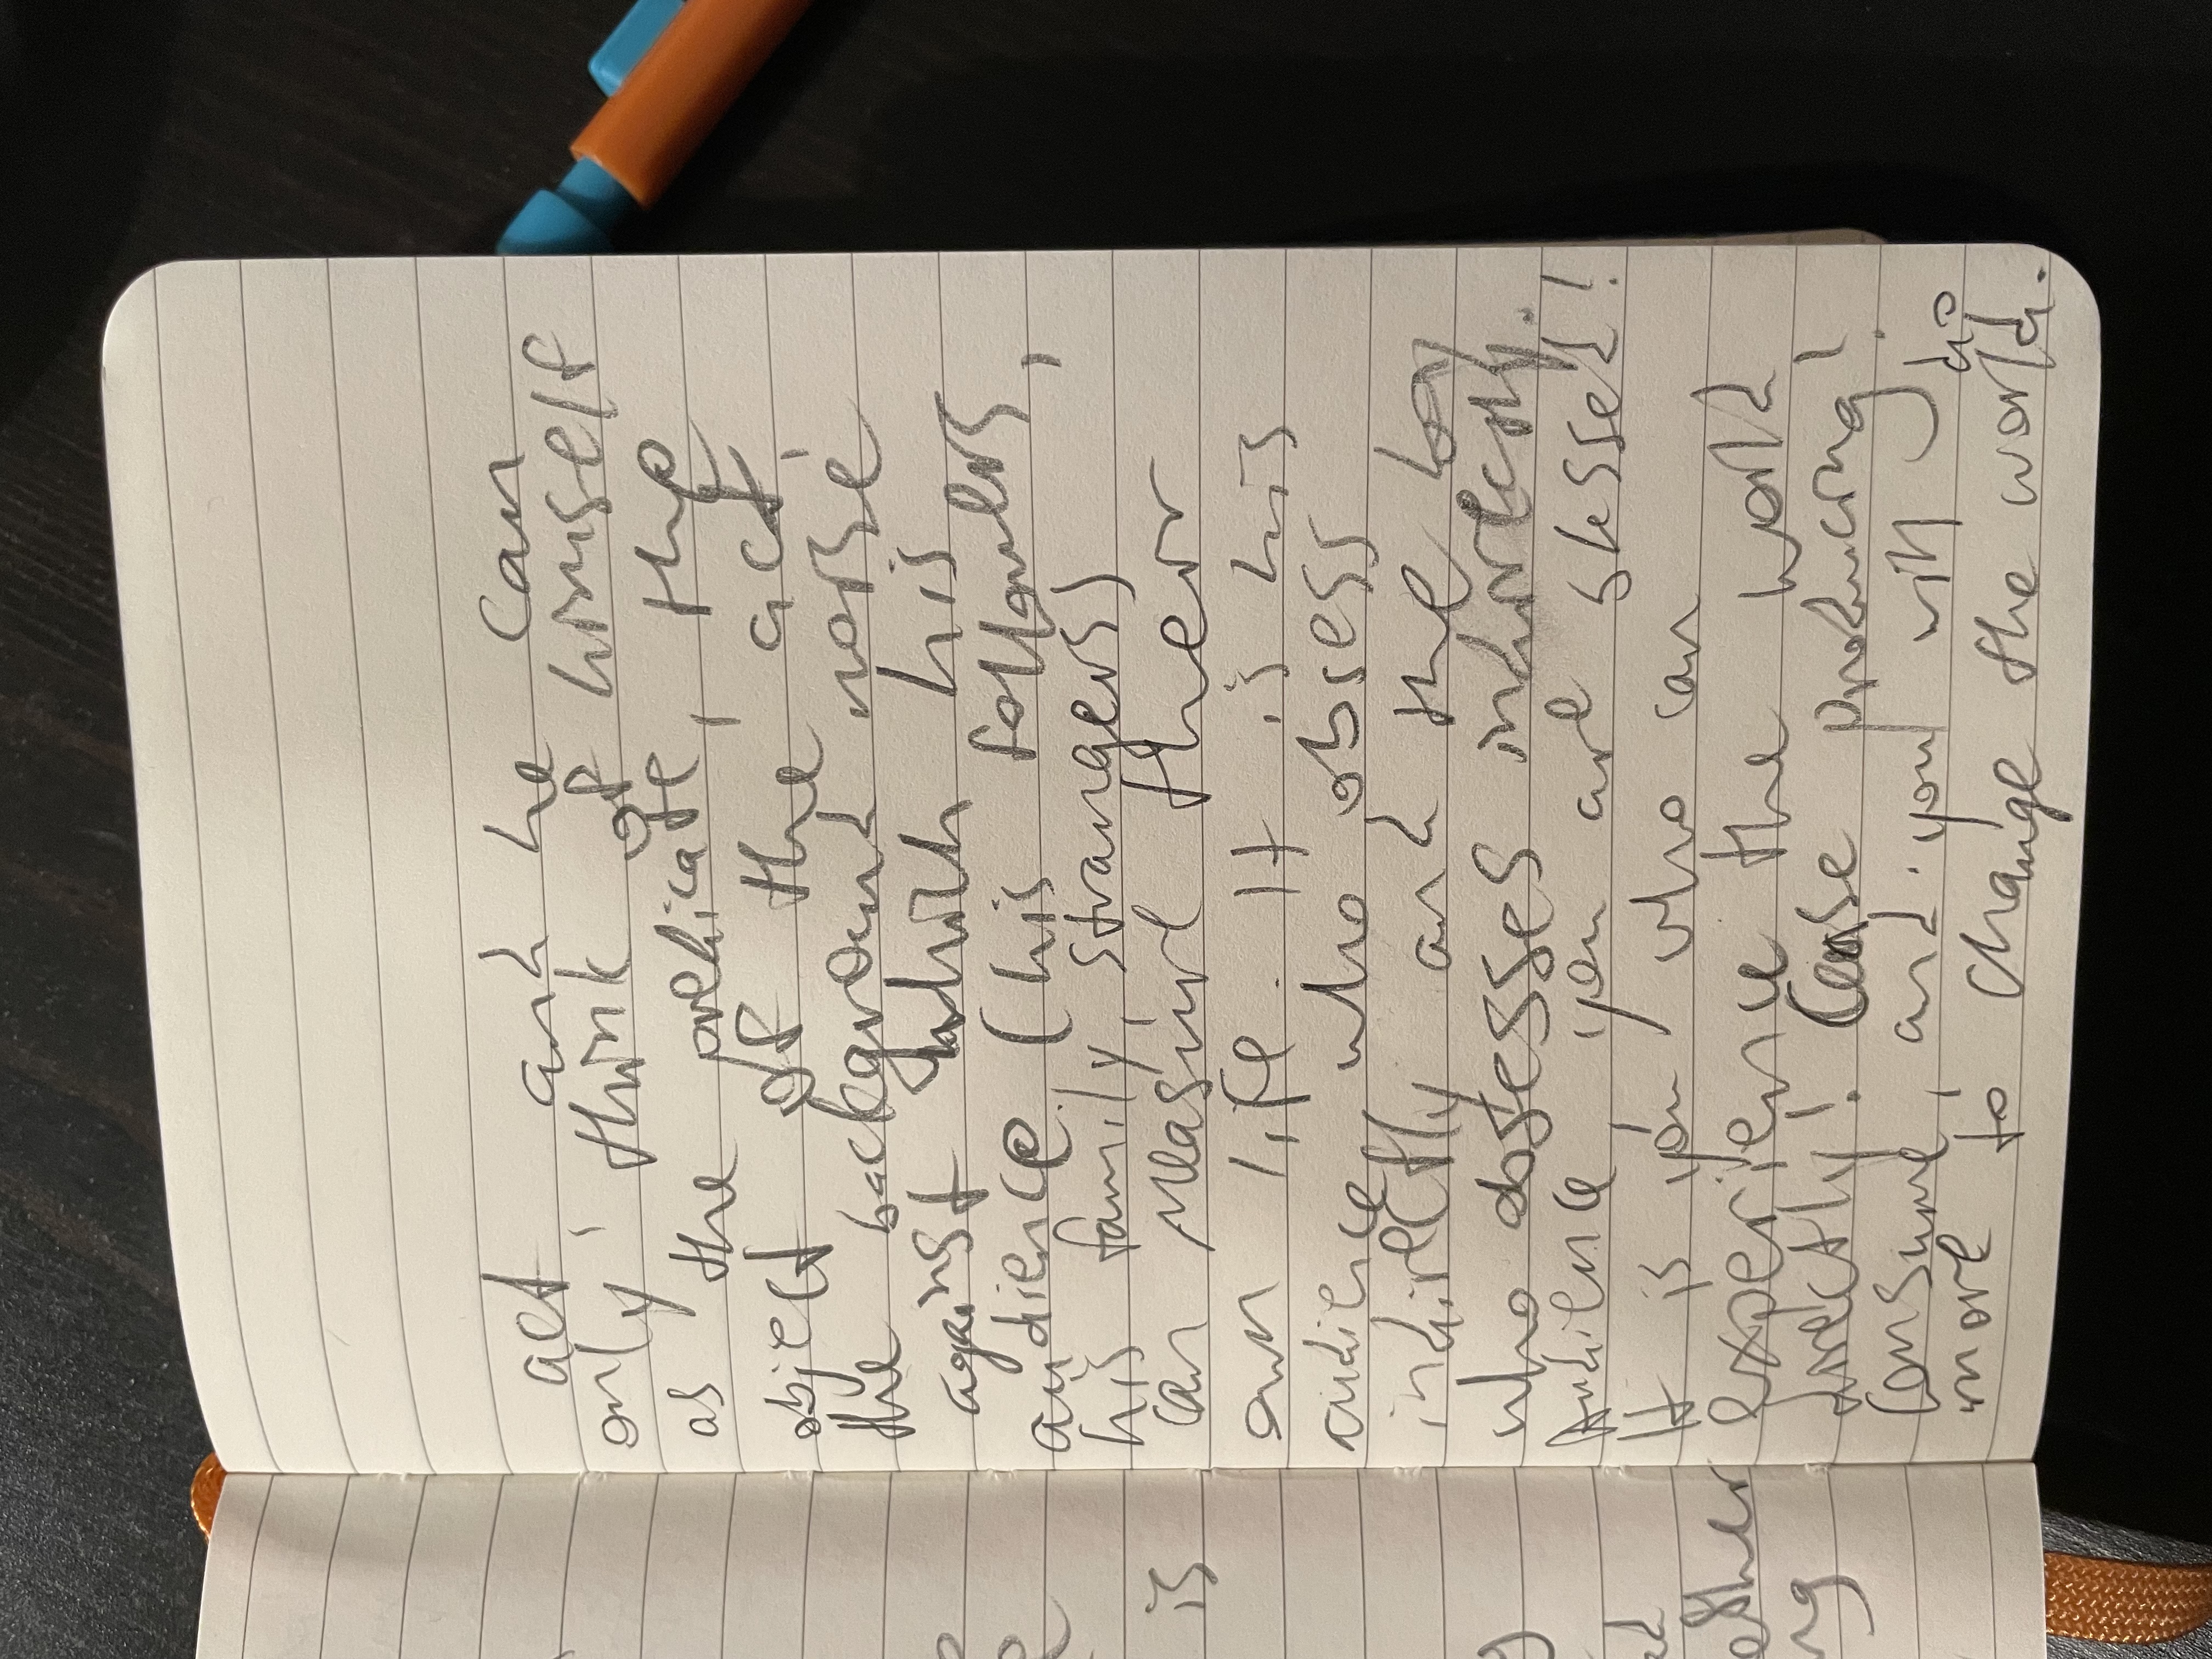 act and he can
only think of himself
as the predicate, the
object of the act,
the background noise
against which his
audience (his followers,
his family, strangers)
can measure their
own life. It is his
audience who obsess
indirectly and the boy
who obsesses indirectly.
Audience, you are blessed!
It is you who can
experience the world
directly! Cease producing,
consume, and you will do
more to change the world.
is